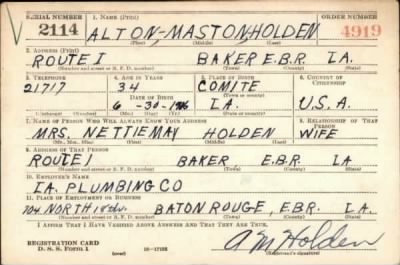 SERIAL NUMBER 1. NAME (Print) ORDER NUMBER
2114 ALTON-MASTON HOLDEN 4919
(First) (Middle) (Last)
2. ADDRESS (Print)
ROUTE 1 BAKER E.B.R. LA.
(Number and street or R. F. D. number) (Town) (County) (State)
3. TELEPHONE 4. AGE IN YEARS 5. PLACE OF BIRTH 6. COUNTRY OF CITIZENSHIP
21717 34 COMITE
DATE OF BIRTH (Town or county)
6-30-1906 LA. U.S.A.
(Mo.) (Day) (Yr.) (State or country)
7. NAME OF PERSON WHO WILL ALWAYS KNOW YOUR ADDRESS 8. RELATIONSHIP OF THAT PERSON
MRS. NETTIE MAY HOLDEN WIFE
(Mr., Mrs., Miss) (First) (Middle) (Last)
9. ADDRESS OF THAT PERSON
ROUTE 1 BAKER E.B.R. LA
(Number and street or R. F. D. number) (Town) (County) (State)
10. EMPLOYER'S NAME
LA. PLUMBING CO
11. PLACE OF EMPLOYMENT OR BUSINESS
704 NORTH BATON ROUGE, E.B.R. LA.
(Number and street or R. F. D. number) (Town) (County) (State)
I AFFIRM THAT I HAVE VERIFIED ABOVE ANSWERS AND THAT THEY ARE TRUE.
REGISTRATION CARD
D. S. S. Form 1 (over) 16-17105 A M Holden
(Registrant's signature)